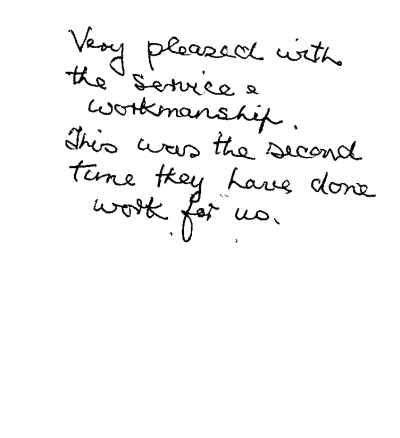 Very pleased with
the service &
workmanship.
This was the second
time they have done
work for us.